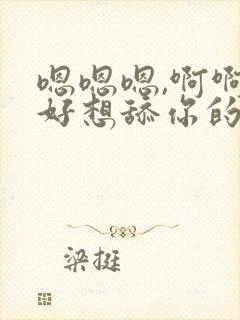 嗯嗯嗯,啊啊
好想舔你的
梁挺